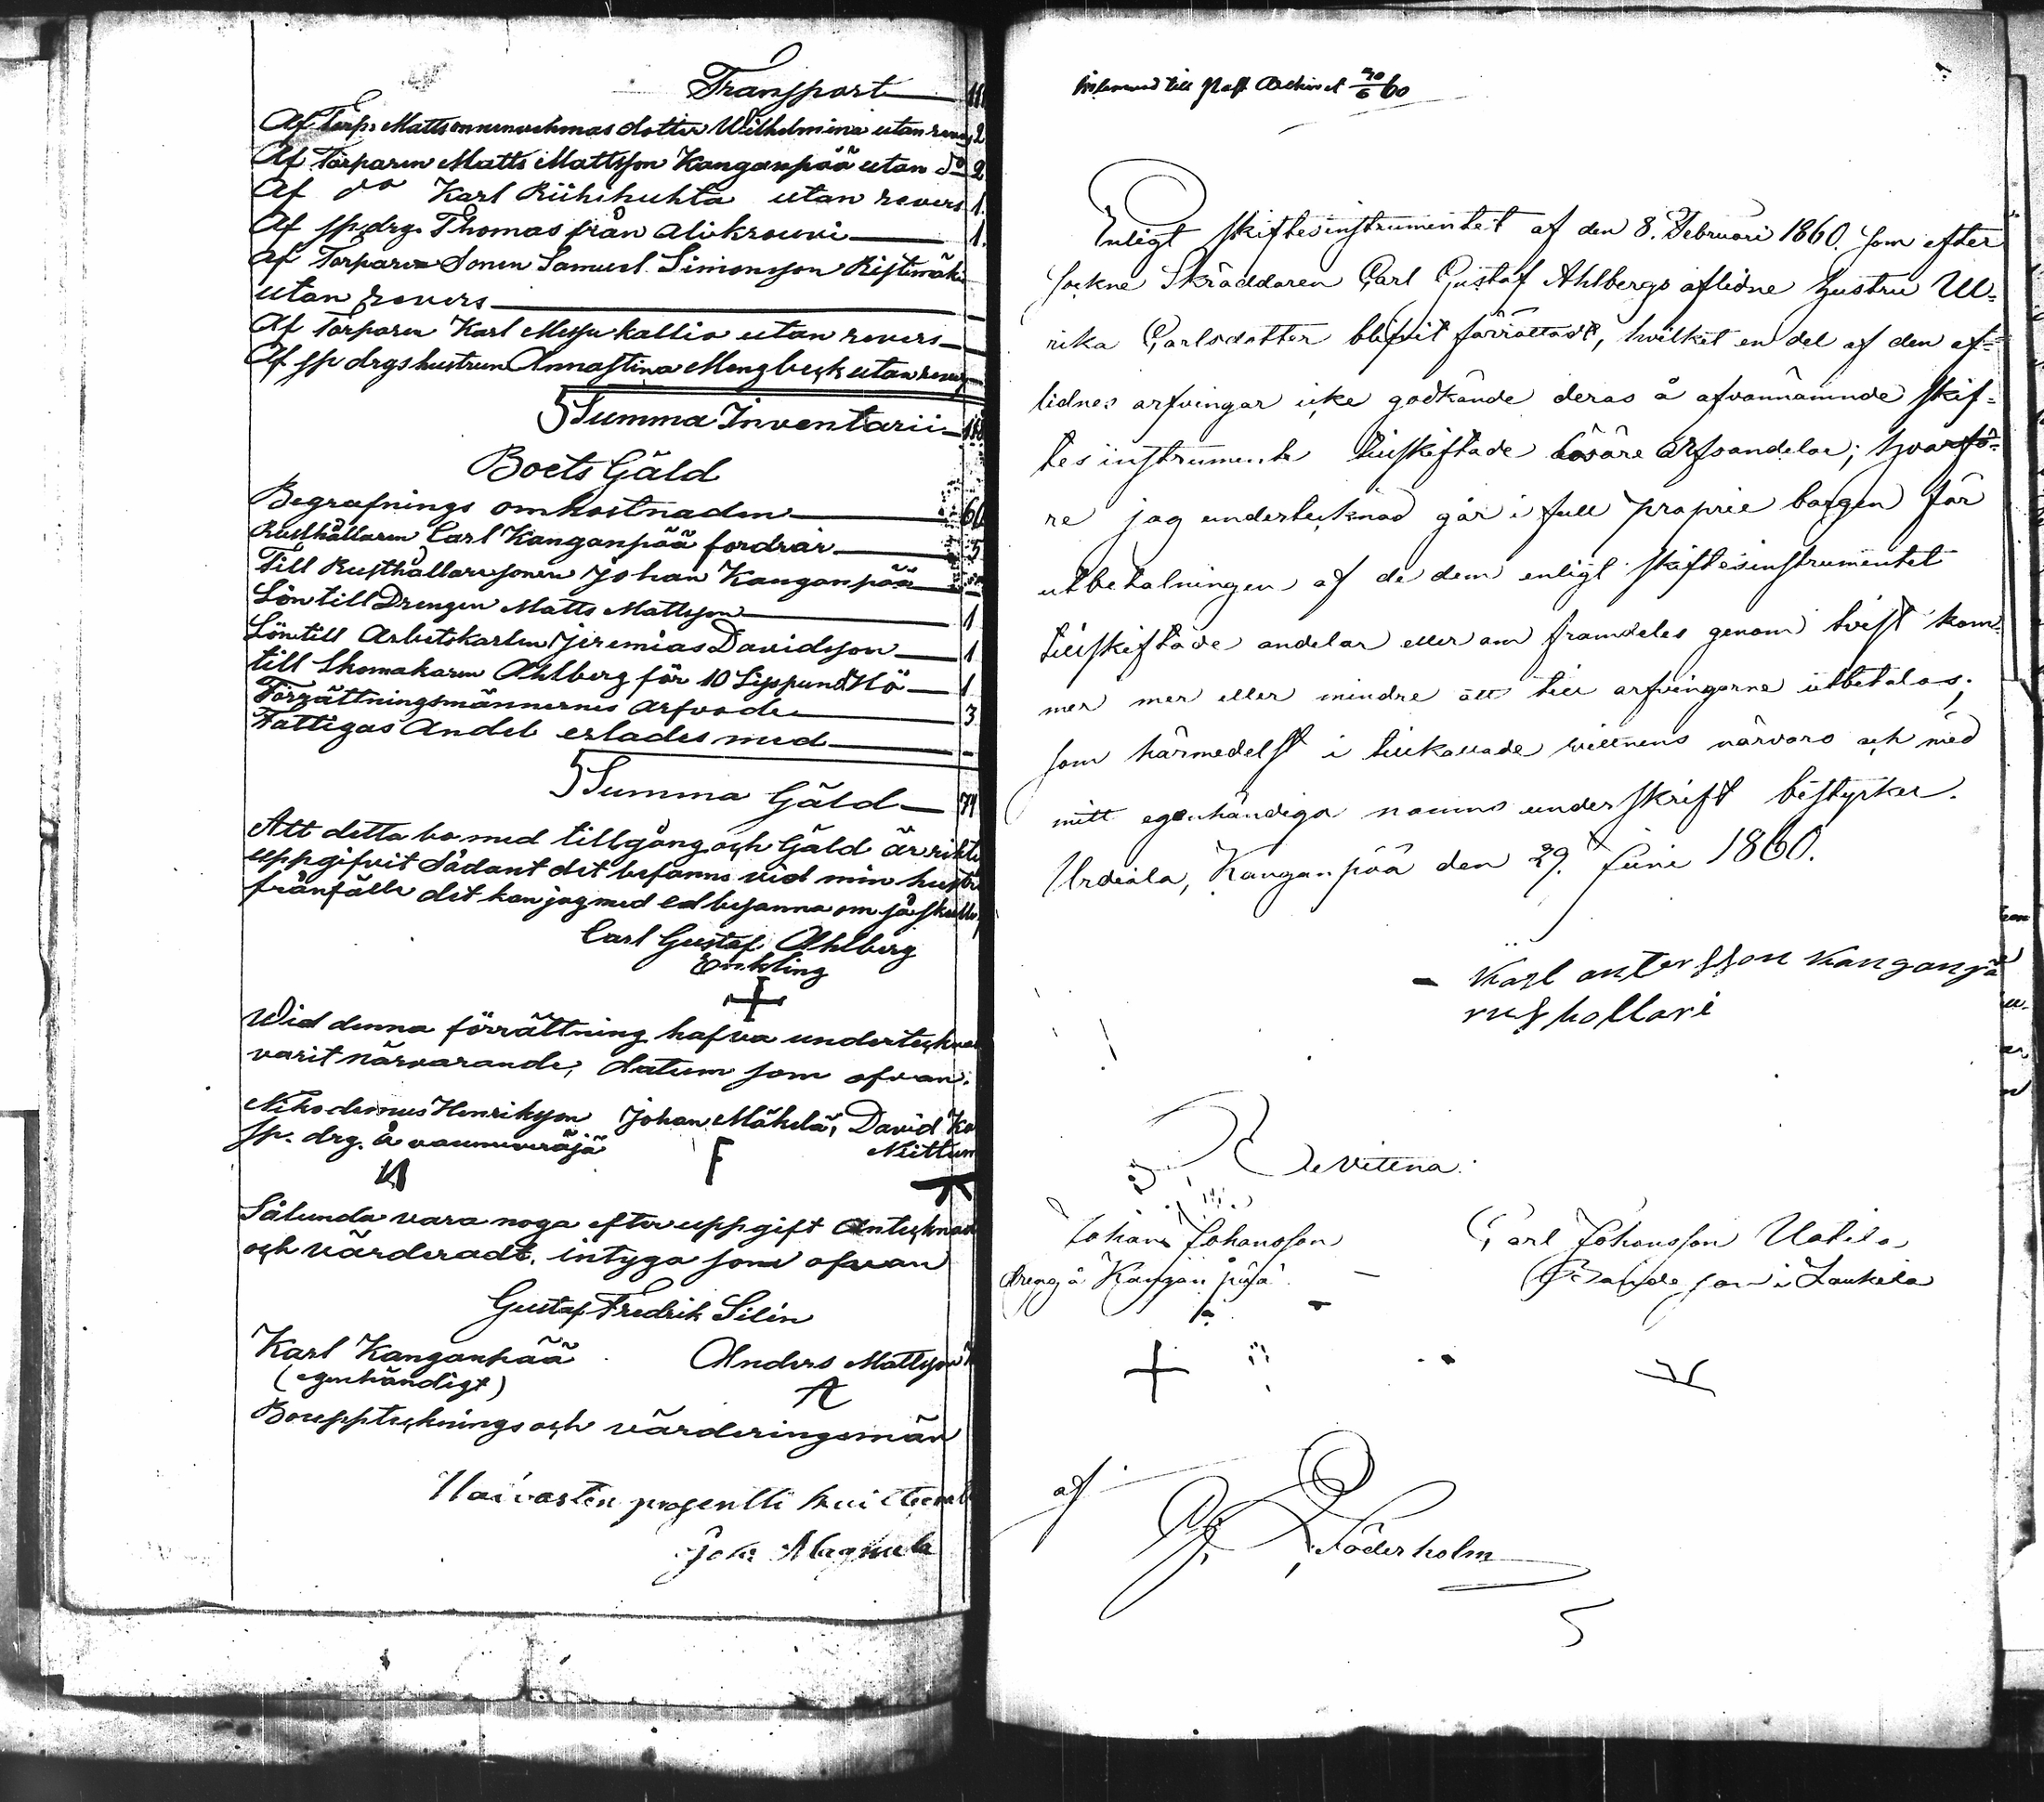 Transport
Af Torp. Mattson dotter Wilhelmina utan revers 2
Af Torparen Matts Mattsson Kanganpää utan do 2
Af do Karl Riihihuhta utan revers 1.
Af sp. drg. Thomas från Alikrouvi 1.
Af Torpare Sonen Samuel Simonsson Ristimäki
utan revers
Af Torparen Karl Messukallio utan revers
Af sp drgs hustrun Annastina Mengbeck utan revers
Summa Inventarii
Boets Gäld
Begrafnings omkostnaden 60
Rusthållaren Carl Kanganpää fordrar 5
Till Rusthållaresonen Johan Kanganpää
Lön till Drengen Matts Mattsson 1
Lön till Arbetskarlen Jeremias Davidsson 1
till Skomakaren Ahlberg för 10 Lispund Hö 1
Förrättningsmännernes Arfvode 3
Fattigas Andel erlades med
Summa Gäld 71
Att detta bo med tillgång och Gäld är rikti
uppgifvit sådant det befanns vid min hustr
frånfälle det kan jag med ed besanna om så skulle
Carl Gustaf Ahlberg
Enkling
Wid denna förrättning hafva underteckna
varit närvarande, datum som ofvan.
Nikodemus Henriksson Johan Mäkelä, David Ko
sp. drg. å vaunuveräjä Niittum
Sålunda vara noga efter uppgift Antecknad
och värderadt, intyga som ofvan
Gustaf Fredrik Silén
Karl Kanganpää Anders Mattsson
(egenhändigt)
A
Bouppteknings och värderingsmän
Waivasten prosentti kuitteerat
Joh: Magnula
Inlemnad till Häft Archivet 30/6 60
Enligt skiftesinstrumentet af den 8. Februari 1860. som efter
sockne Skräddaren Carl Gustaf Ahlbergs aflidne hustru Ul=
rika Carlsdotter blifvit förrättadt, hvilket en del af den af=
lidnes arfvingar icke godkände deras å afvannämnde skif=
tes instrumente tillskiftade lösöre arfsandelar; hvarfö=
re jag undertecknad går i full proprie borgen för
utbetalningen af de dem enligt skiftesinstrumentet
tillskiftade andelar eller om framdeles genom tvist kom=
mer mer eller mindre att till arfvingarne utbetalas;
som härmedelst i tillkallade vittnens närvaro och med
mitt egenhändiga namns underskrift bestyrker.
Urdiala, Kanganpää den 29. Juni 1860.
Karl antersson Kanganpä
rushollari
Bevittna:
Johan Johansson Carl Johansson Uotila
dreng å Kanganpää Bonde son i Laukela
af
G. F. Söderholm